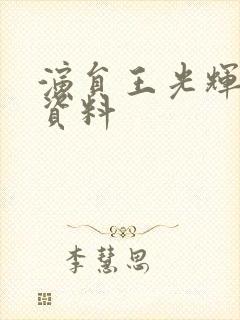 演員王光輝
資料
李慧思